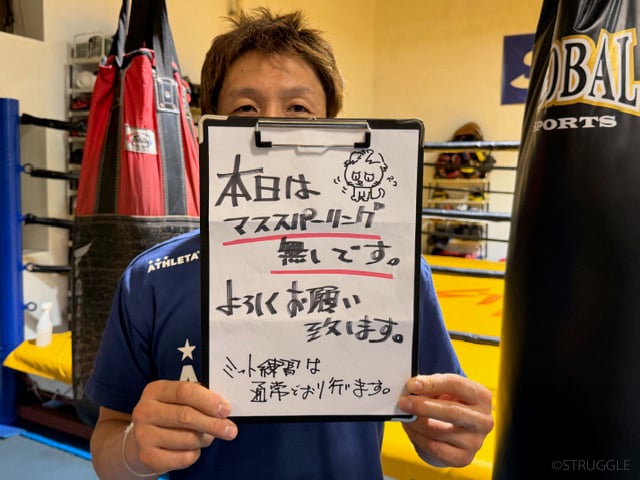 本日は
マススパーリング
無しです。
よろしくお願い
致します。
ミット練習は
通常どおり行います。
ATHLETA
OBAL
SPORTS
©STRUGGLE